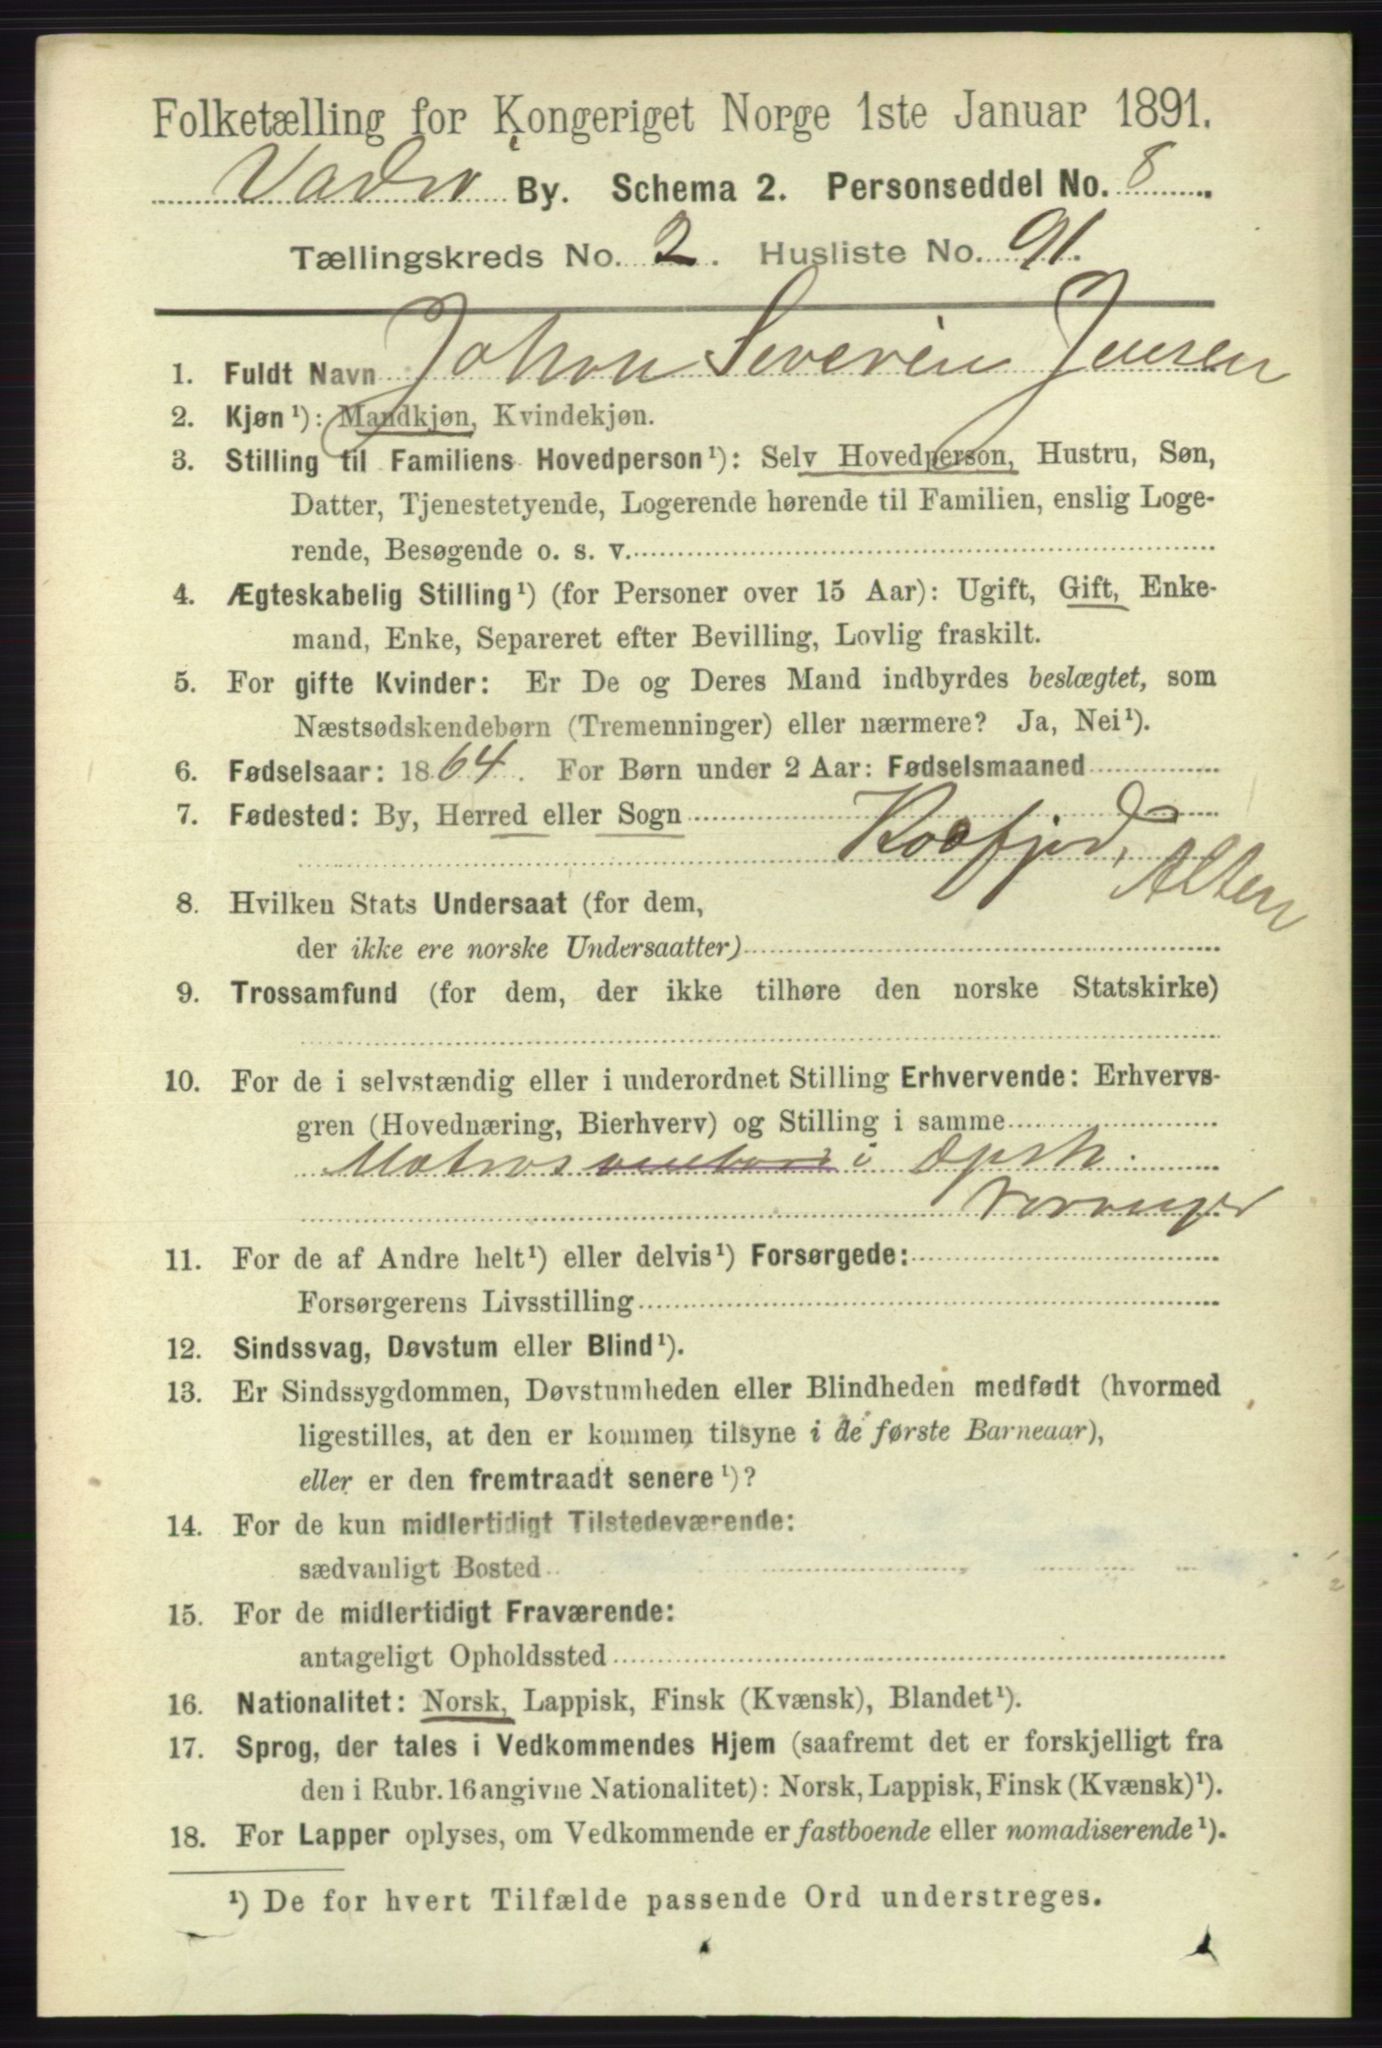 Folketælling for Kongeriget Norge 1ste Januar 1891.
Vadsø By. Schema 2. Personseddel No. 8
Tællingskreds No. 2. Husliste No. 91.
1. Fuldt Navn Johan Severin Jensen
2. Kjøn¹): Mandkjøn, Kvindekjøn.
3. Stilling til Familiens Hovedperson¹): Selv Hovedperson, Hustru, Søn,
Datter, Tjenestetyende, Logerende hørende til Familien, enslig Loge-
rende, Besøgende o. s. v.
4. Ægteskabelig Stilling¹) (for Personer over 15 Aar): Ugift, Gift, Enke-
mand, Enke, Separeret efter Bevilling, Lovlig fraskilt.
5. For gifte Kvinder: Er De og Deres Mand indbyrdes beslægtet, som
Næstsødskendebørn (Tremenninger) eller nærmere? Ja, Nei¹).
6. Fødselsaar: 1864. For Børn under 2 Aar: Fødselsmaaned
7. Fødested: By, Herred eller Sogn
Kaafjord, Alten
8. Hvilken Stats Undersaat (for dem,
der ikke ere norske Undersaatter)
9. Trossamfund (for dem, der ikke tilhøre den norske Statskirke)
10. For de i selvstændig eller i underordnet Stilling Erhvervende: Erhvervs-
gren (Hovednæring, Bierhverv) og Stilling i samme
Matros i Opsk.
Varanger
11. For de af Andre helt¹) eller delvis¹) Forsørgede:
Forsørgerens Livsstilling
12. Sindssvag, Døvstum eller Blind¹).
13. Er Sindssygdommen, Døvstumheden eller Blindheden medfødt (hvormed
ligestilles, at den er kommen tilsyne i de første Barneaar),
eller er den fremtraadt senere¹)?
14. For de kun midlertidigt Tilstedeværende:
sædvanligt Bosted
15. For de midlertidigt Fraværende:
antageligt Opholdssted
16. Nationalitet: Norsk, Lappisk, Finsk (Kvænsk), Blandet¹).
17. Sprog, der tales i Vedkommendes Hjem (saafremt det er forskjelligt fra
den i Rubr. 16 angivne Nationalitet): Norsk, Lappisk, Finsk (Kvænsk)¹).
18. For Lapper oplyses, om Vedkommende er fastboende eller nomadiserende¹).
¹) De for hvert Tilfælde passende Ord understreges.